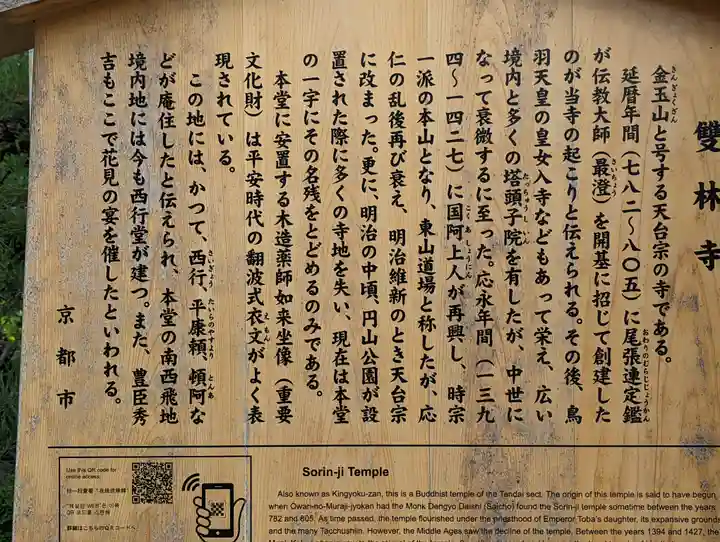 雙林寺
金玉山と号する天台宗の寺である。
延暦年間(七八二~八〇五)に尾張連定鑑
が伝教大師(最澄)を開基に招じて創建した
のが当寺の起こりと伝えられる。その後、鳥
羽天皇の皇女入寺などもあって栄え、広い
境内と多くの塔頭子院を有したが、中世に
なって衰微するに至った。応永年間(一三九
四~一四二七)に国阿上人が再興し、時宗
一派の本山となり、東山道場と称したが、応
仁の乱後再び衰え、明治維新のとき天台宗
に改まった。更に、明治の中頃、円山公園が設
置された際に多くの寺地を失い、現在は本堂
の一宇にその名残をとどめるのみである。
本堂に安置する木造薬師如来坐像(重要
文化財)は平安時代の翻波式衣文がよく表
現されている。
この地には、かつて、西行、平康頼、頓阿な
どが庵住したと伝えられ、本堂の南西飛地
境内地には今も西行堂が建つ。また、豊臣秀
吉もここで花見の宴を催したといわれる。
京都市
Use this QR code for
online access.
詳細はこちらのQRコードへ
Sorin-ji Temple
Also known as Kingyoku-zan, this is a Buddhist temple of the Tendai sect. The origin of this temple is said to have begun
when Owari-no-Muraji-jyokan had the Monk Dengyo Daishi (Saicho) found the Sorin-ji temple sometime between the years
782 and 805. As time passed, the temple flourished under the priesthood of Emperor Toba's daughter, its expansive grounds
and the many Tacchushiin. However, the Middle Ages saw the decline of the temple. Between the years 1394 and 1427, the